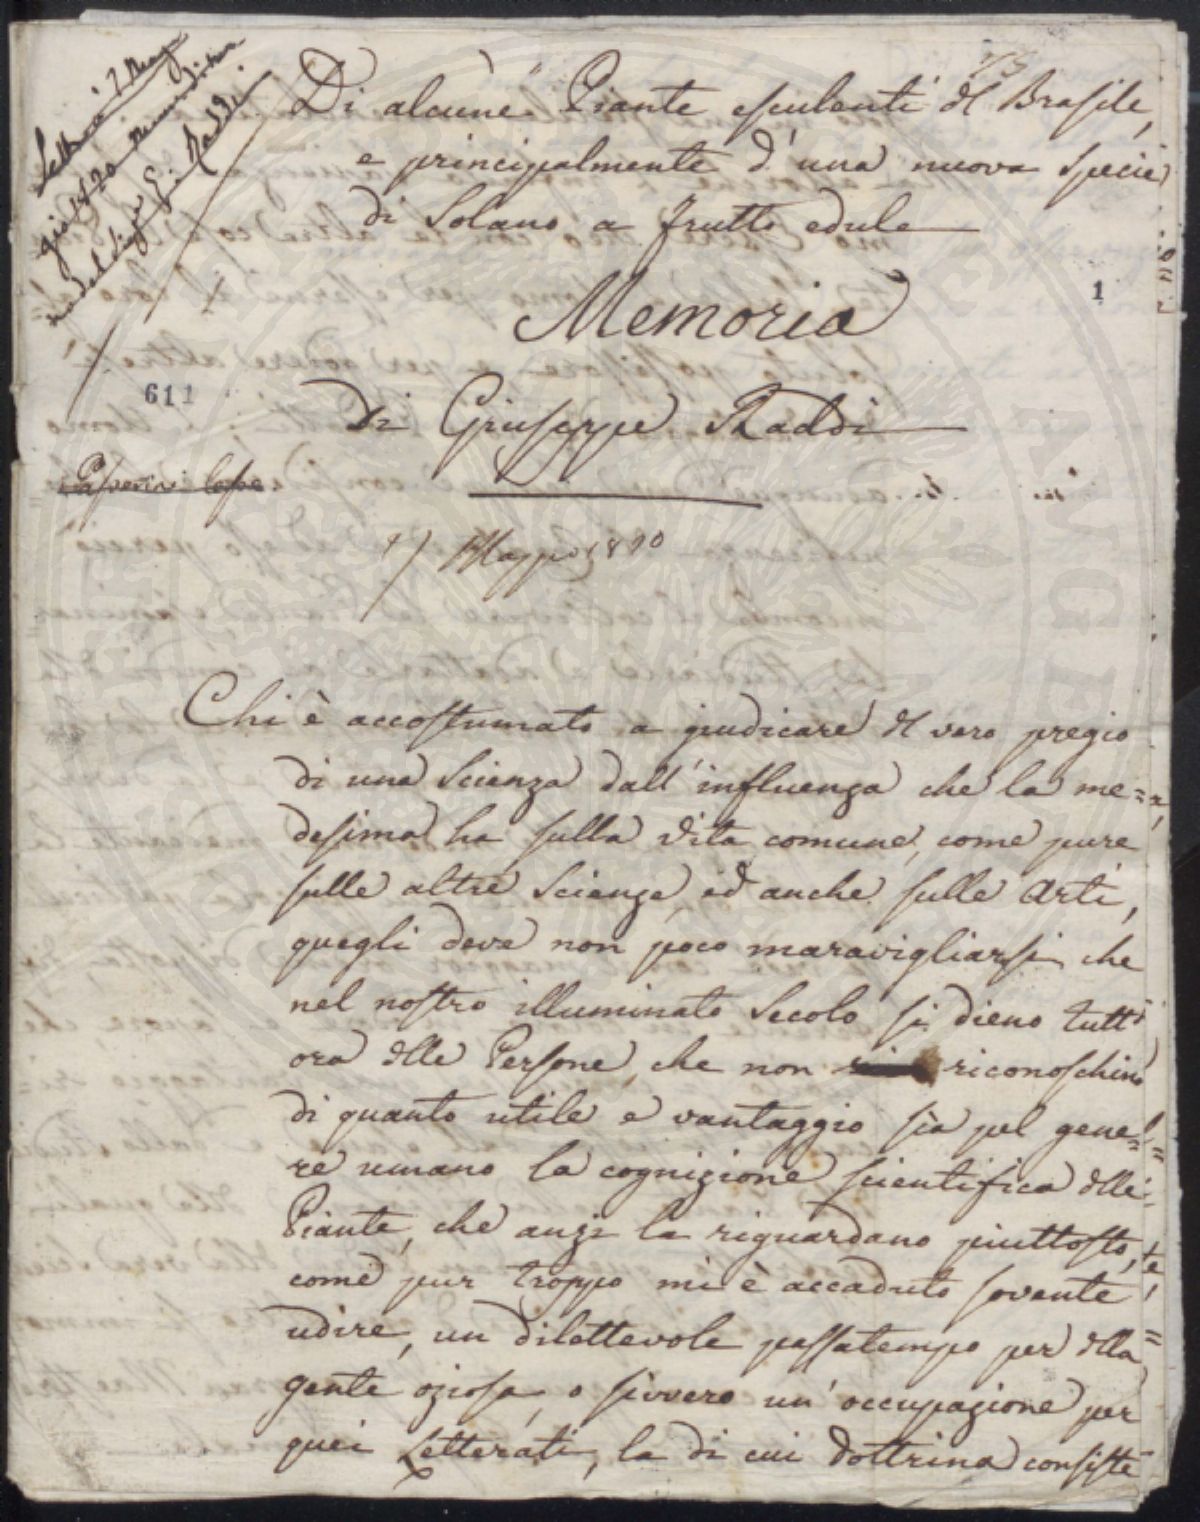 Letta il 7 Mag
gio 1820
Raddi
73
Di alcune Piante esculenti del Brasile,
e principalmente d'una nuova specie
di Solano a frutto edule
1
Memoria
Di Giuseppe Raddi
611
7 Maggio 1820
Chi è accostumato a giudicare del vero pregio
di una Scienza dall'influenza che la me=
desima ha sulla vita comune, come pure
sulle altre Scienze, ed anche sulle Arti,
quegli deve non poco maravigliarsi che
nel nostro illuminato Secolo si dieno tutt'
ora delle Persone, che non riconoschino
di quanto utile e vantaggio sia pel gene=
re umano la cognizione scientifica delle
Piante, che anzi la riguardano piuttosto,
come pur troppo mi è accaduto sovente
udire, un dilettevole passatempo per della
gente oziosa, o sivvero un'occupazione per
quei Letterati, la di cui dottrina consiste